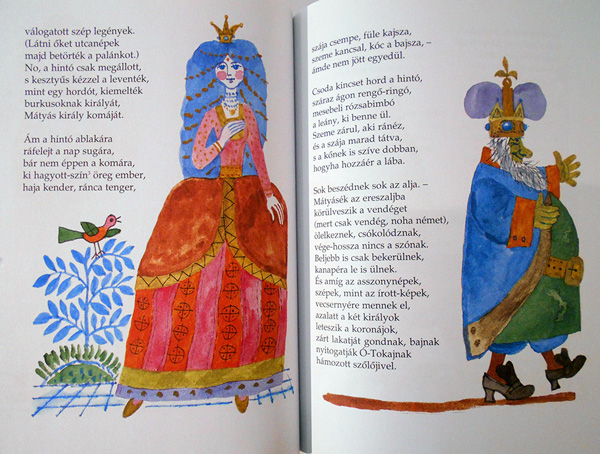 válogatott szép legények.
(Látni őket utcanépek
majd betörték a palánkot.)
No, a hintó csak megállott,
s kesztyűs kézzel a leventék,
mint egy hordót, kiemelték
burkusoknak királyát,
Mátyás király komáját.
Ám a hintó ablakára
ráfelejt a nap sugára,
bár nem éppen a komára,
ki hagyott-szín³ öreg ember,
haja kender, ránca tenger,
szája csempe, füle kajsza,
szeme kancsal, kóc a bajsza, –
ámde nem jött egyedül.
Csoda kincset hord a hintó,
száraz ágon rengő-ringó,
mesebeli rózsabimbó
a leány, ki benne ül.
Szeme zárul, aki ránéz,
és a szája marad tátva,
s a kőnek is szíve dobban,
hogyha hozzáér a lába.
Sok beszédnek sok az alja. –
Mátyásék az ereszaljba
körülveszik a vendéget
(mert csak vendég, noha német),
ölelkeznek, csókolódznak,
vége-hossza nincs a szónak.
Beljebb is csak bekerülnek,
kanapéra le is ülnek.
És amíg az asszonynépek,
szépek, mint az írott-képek,
vecsernyére mennek el,
azalatt a két királyok
leteszik a koronájok,
zárt lakatját gondnak, bajnak
nyitogatják Ó-Tokajnak
hámozott szőlőjivel.